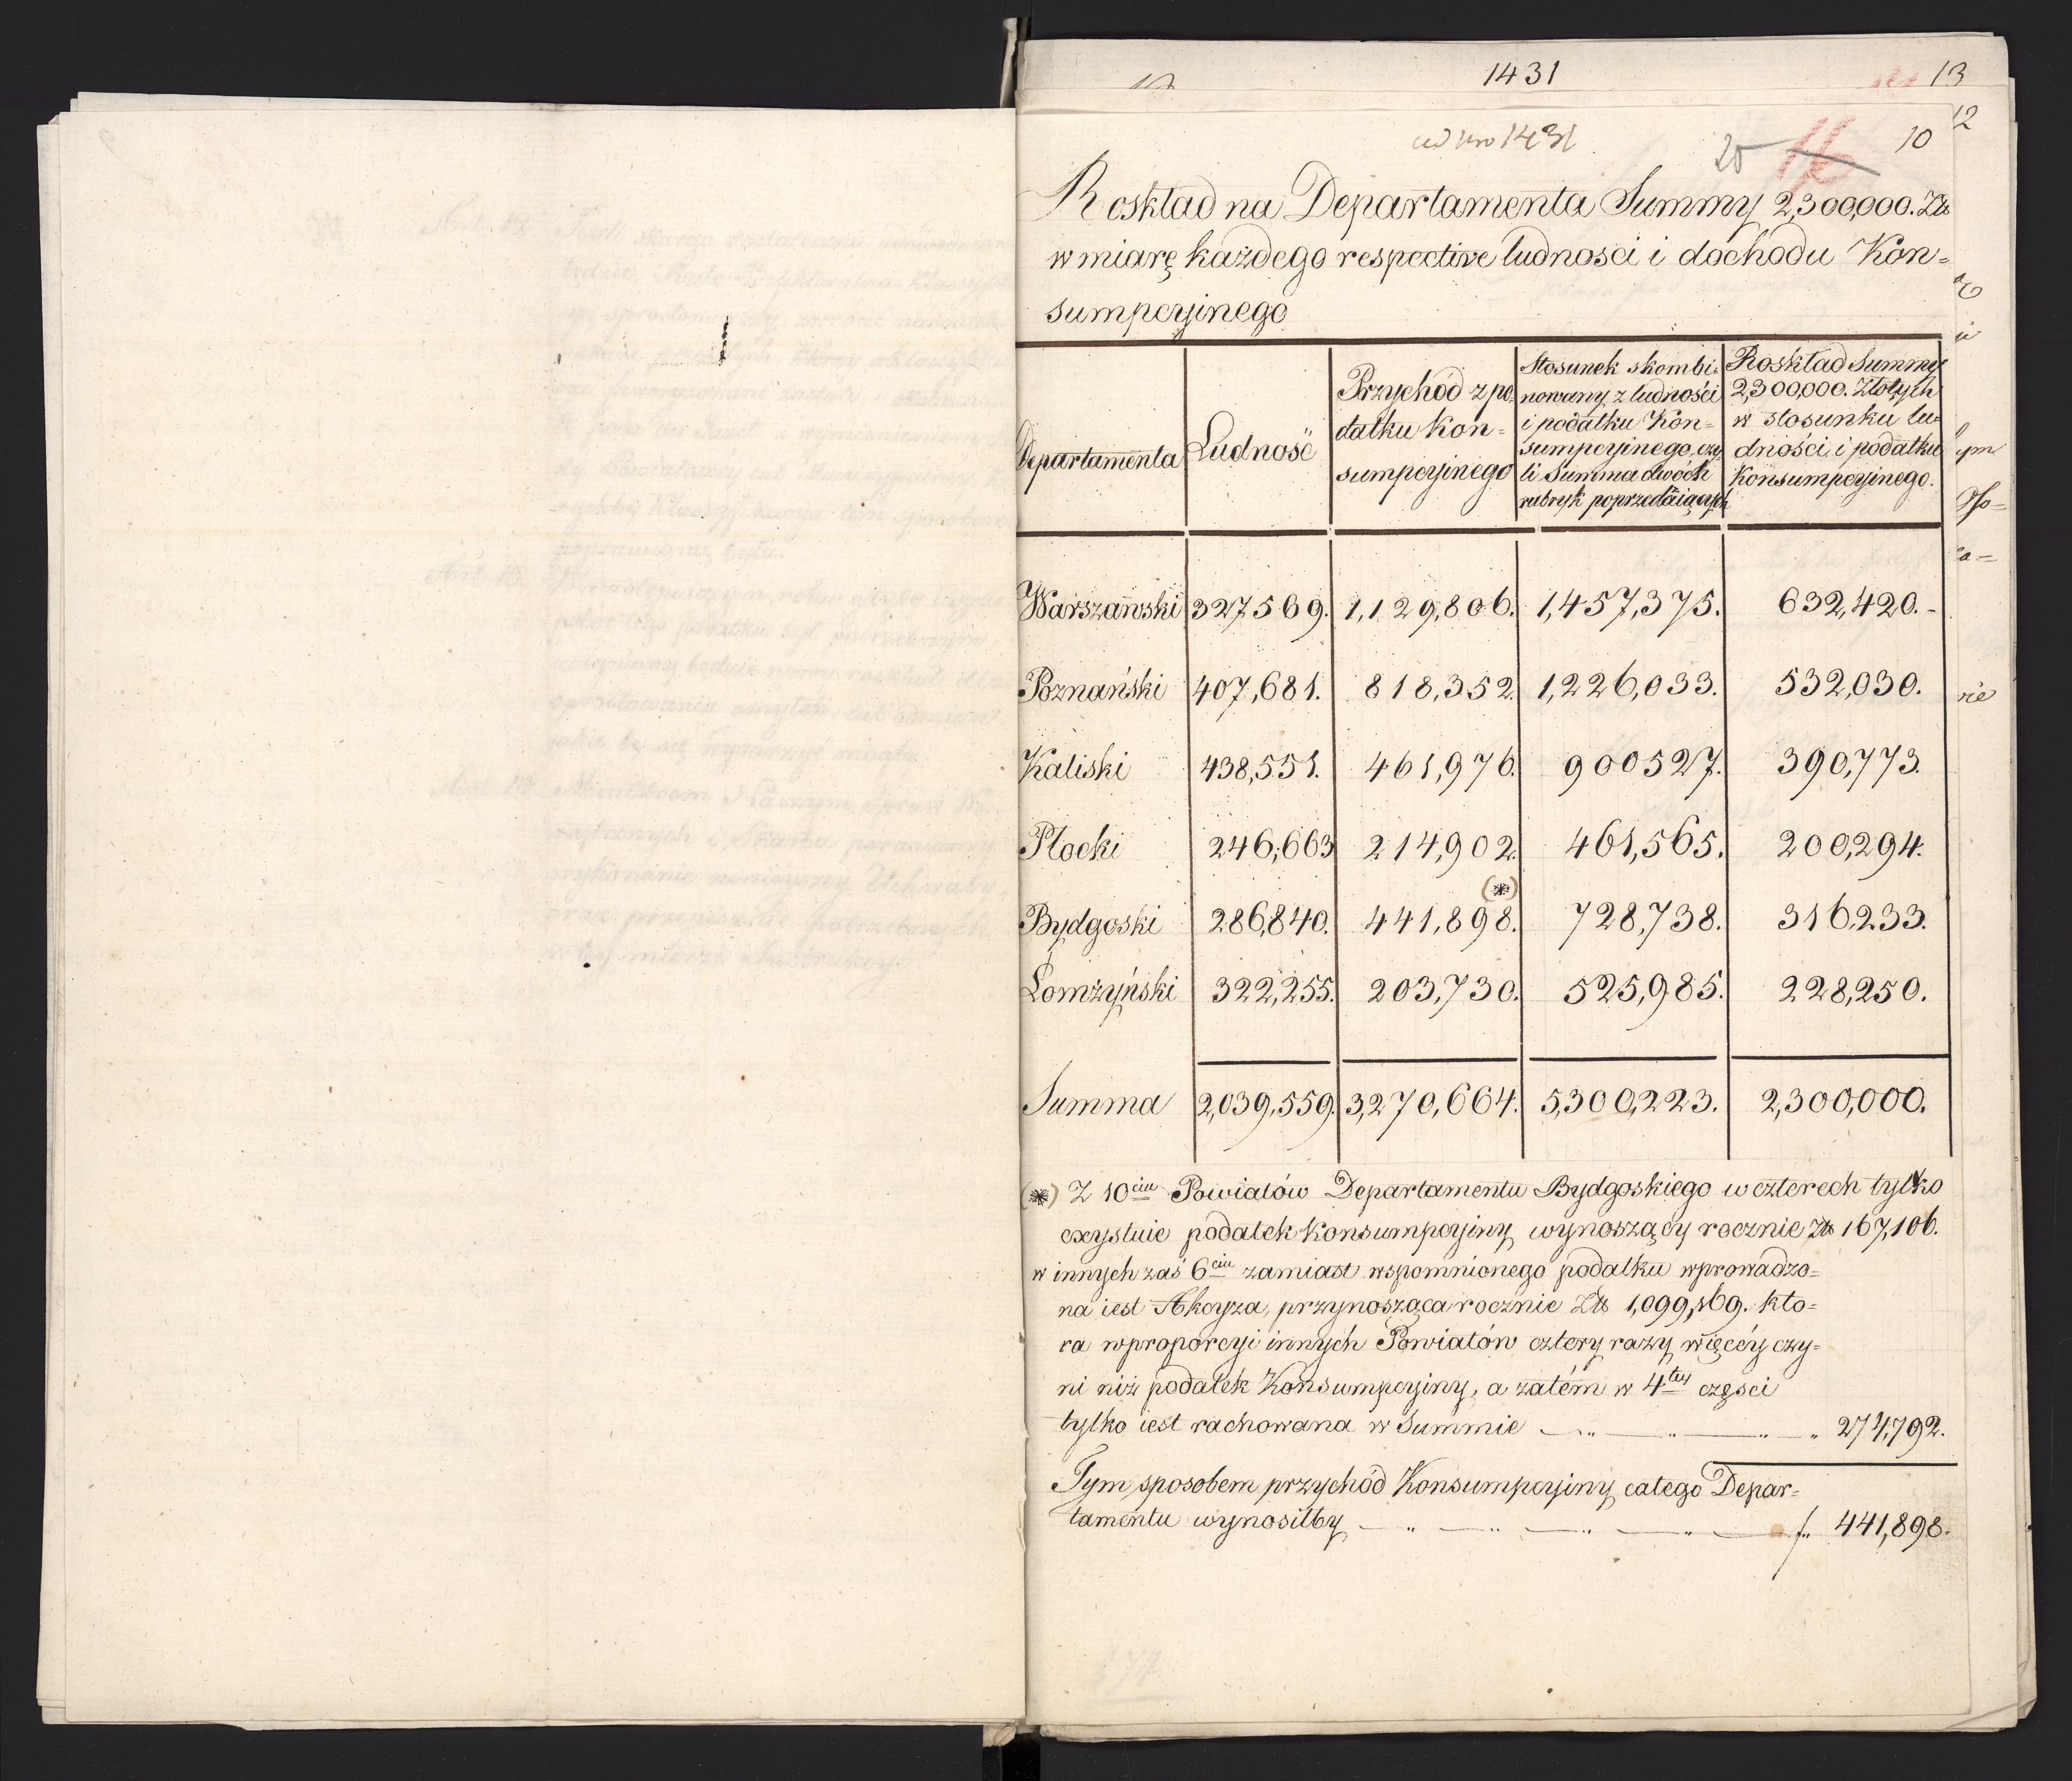 1431
13
12
ad Nro 1431
20
16
10
Roskład na Departamenta Summy 2,300,000. Złt
w miarę każdego respective ludności i dochodu Kon=
sumpcyinego
Departamenta | Ludność | Przychód z po=datku kon=sumpcyinego | Stosunek skombi=nowany z ludności i podatku Kon=sumpcyinego, czy=li Summa dwóch rubryk poprzedzaiących | Roskład Summy 2,300,000. Złotych w stosunku lu=dności i podatku Konsumpcyinego.
Warszawski | 327,569. | 1,129,806. | 1,457,375. | 632,420.-
Poznański | 407,681. | 818,352. | 1,226,033. | 532,030.
Kaliski | 438,551. | 461,976. | 900527. | 390,773.
Płocki | 246,663 | 214,902. | 461,565. | 200,294.
Bydgoski | 286,840. | 441,898. (*) | 728,738. | 316,233.
Łomżyński | 322,255. | 203,730. | 525,985. | 228,250.
Summa | 2,039,559. | 3,270,664. | 5,300,223. | 2,300,000.
(*) Z 10ciu Powiatów Departamentu Bydgoskiego w czterech tylko
exystuie podatek Konsumpcyiny wynoszący rocznie Złt 167,106.
w innych zaś 6ciu zamiast wspomnionego podatku wprowadzo=
na iest Akcyza, przynosząca rocznie Złt 1,099,169. kto=
ra w proporcyi innych Powiatów cztery razy więcéy czy=
ni niż podatek Konsumpcyiny, a zatém w 4téy części
tylko iest rachowana w Summie — „ — „ — „ — „ 274,792.
Tym sposobem przychód Konsumpcyiny całego Depar=
tamentu wynosiłby — „ — „ — „ — „ — f. 441,898.